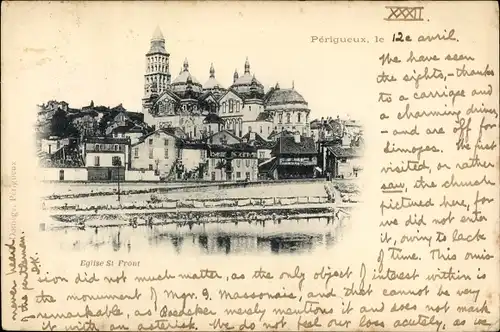 XXII
Périgueux, le 12e avril.
We have seen
the sights, - thanks
to a carriage and
a charming driver,
- and are off for
Limoges. We first
visited, or rather
saw, the church
pictured here, for
we did not enter
it, owing to lack
of time. This omis
sion did not much matter, as the only object of interest within is
the monument of Mgr. G. Massonais, and that cannot be very
remarkable, as Baedeker merely mentions it and does not mark
it with an asterisk. We do not feel our loss acutely, as we
never heard
of the gentleman
Eglise St Front
Périgueux